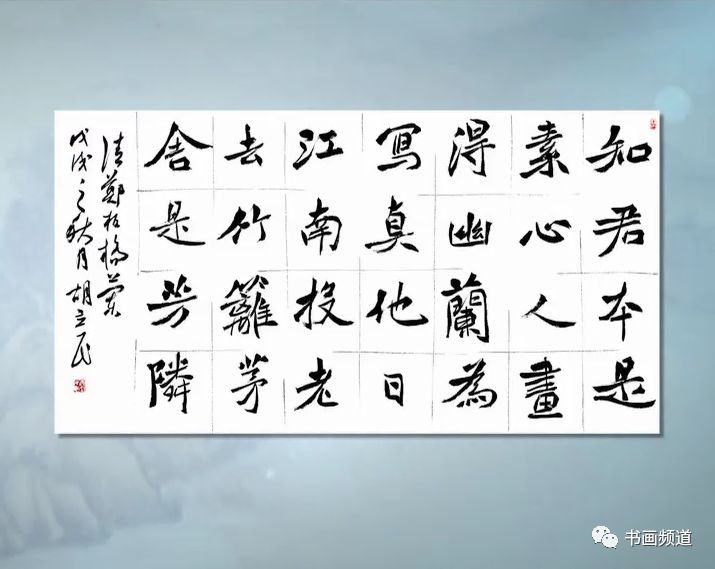 知君本是
素心人畫
得幽蘭為
寫真他日
江南投老
去竹籬茅
舍是芳隣
清鄭板橋蘭
戊戌之秋月胡立民
书画频道